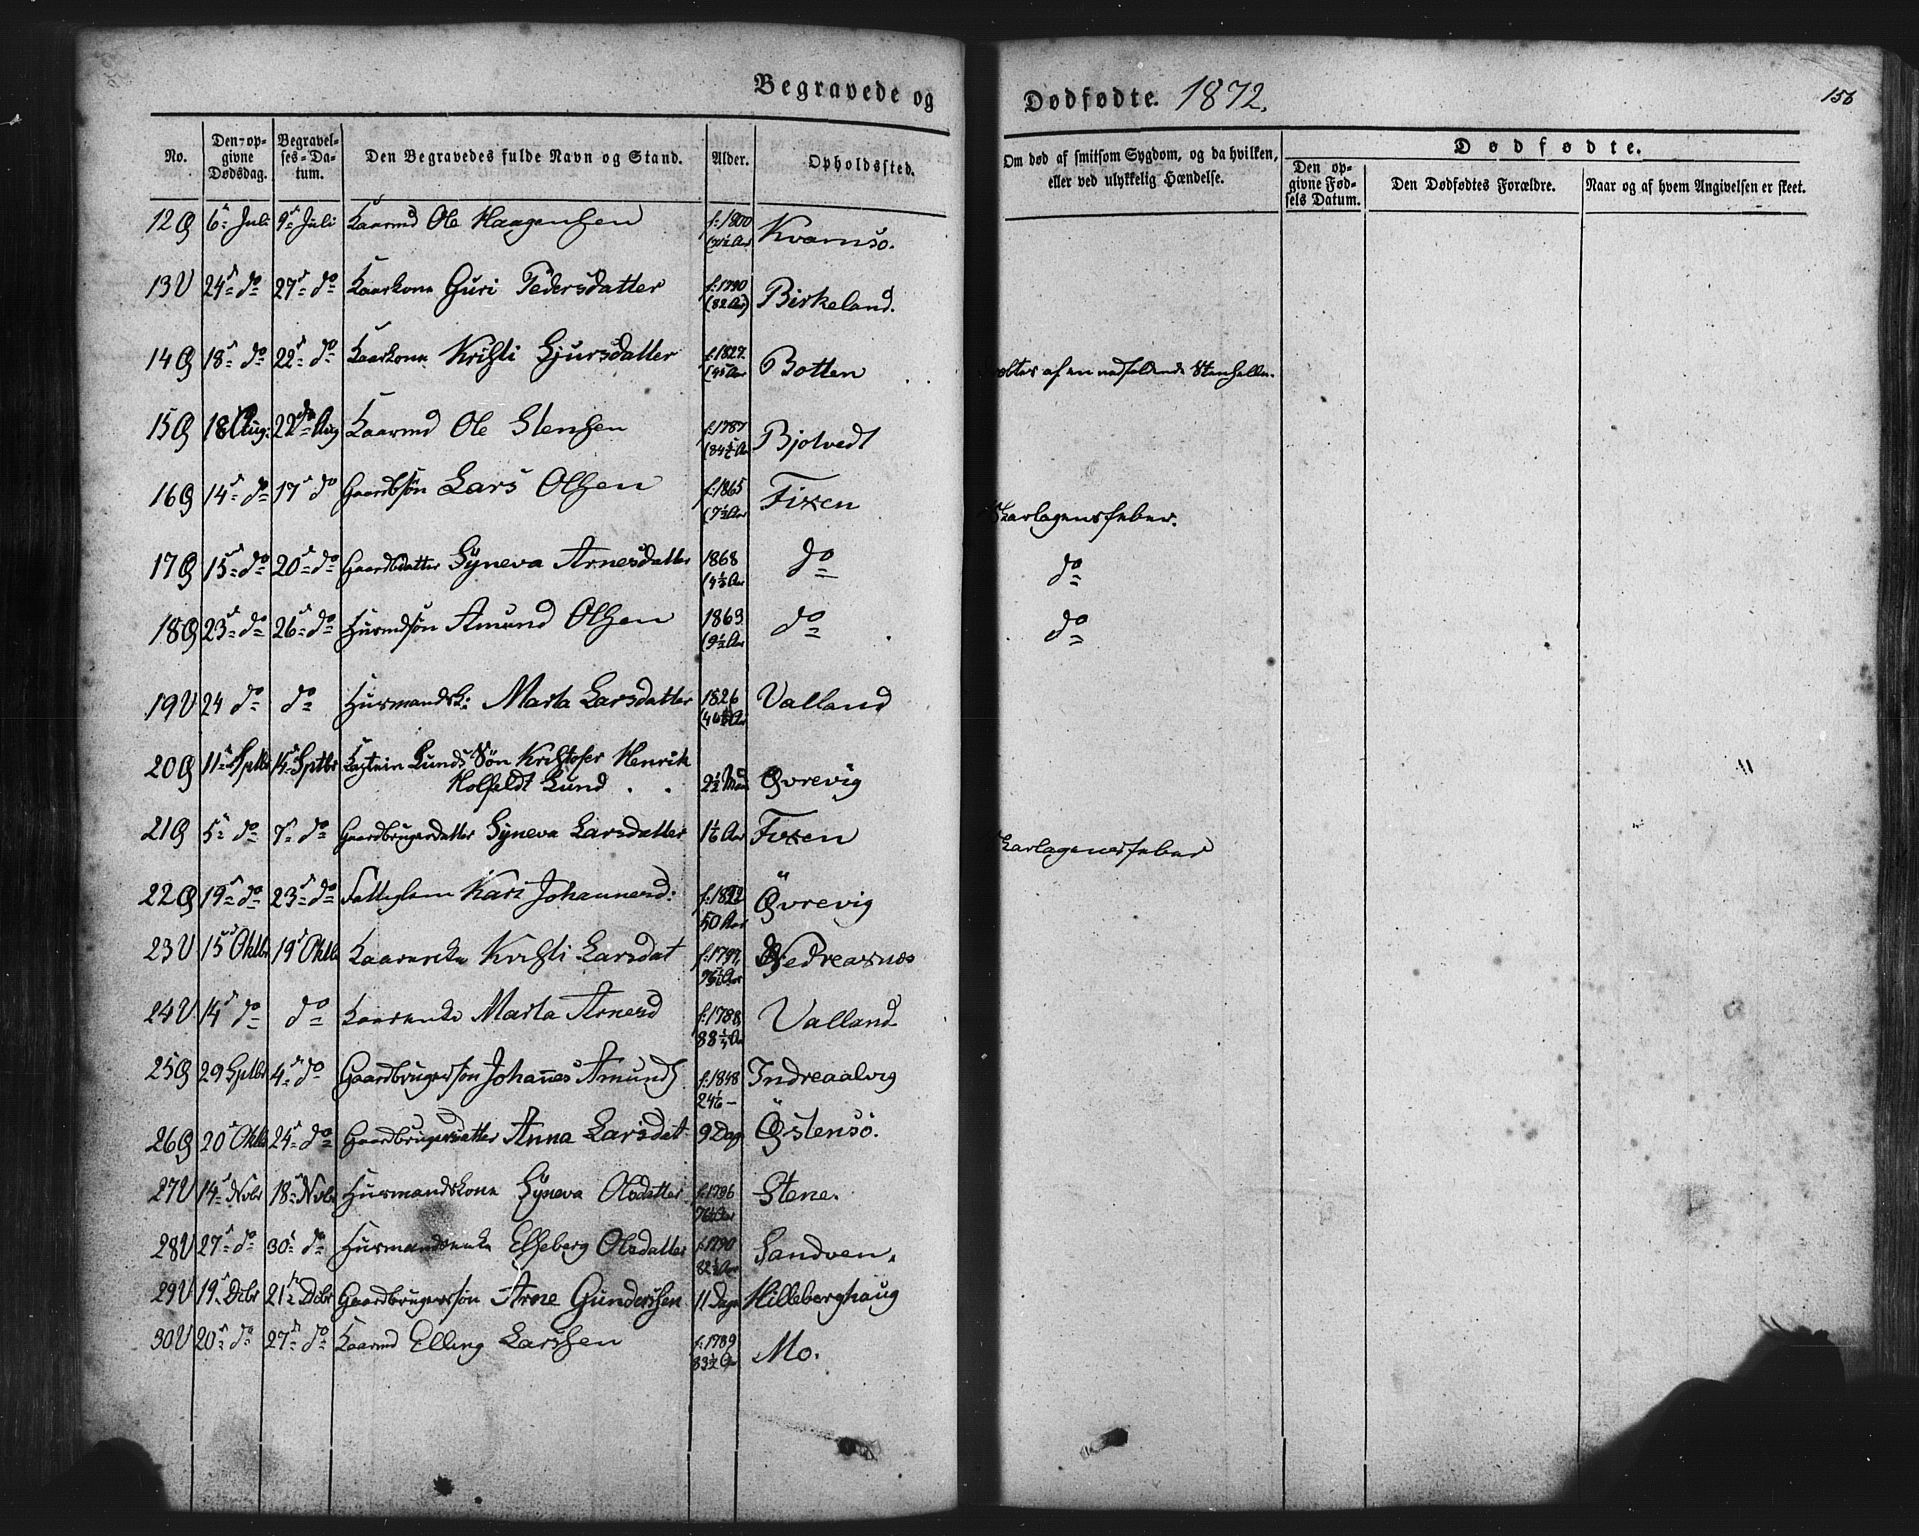 Begravede og Dødfødte. 1872.
156
No.
Den opgivne Dødsdag.
Begravelses-Datum.
Den Begravedes fulde Navn og Stand.
Alder.
Opholdssted.
Om død af smitsom Sygdom, og da hvilken, eller ved ulykkelig Hændelse.
Dødfødte.
Den opgivne Fødsels Datum.
Den Dødfødtes Forældre.
Naar og af hvem Angivelsen er skeet.
12 Ø 6 Juli 9 Juli Kaarmd Ole Haagensen f: 1800 Kvamsø.
13 V 24 do 27 do Kaarkone Guri Pedersdatter f: 1790 (82 Aar) Birkeland.
14 Ø 18 do 22 do Kaarkone Kristi Sjursdatter f. 1827 (45 Aar Botten af en nedfaldende Stenhelle.
15 Ø 18 Aug: 22 Aug Kaarmd Ole Stensen f. 1787 Bjotvedt
16 Ø 14 do 17 do Gaardbsøn Lars Olsen f: 1865 (7½ Aar Fixen Skarlagensfeber.
17 Ø 15 do 20 do Gaardbdatter Syneva Arnesdatter 1868 Fixen do do
18 Ø 23 do 26 do Husmdsøn Amund Olsen 1863 (9½ Aar do do
19 V 24 do do Husmandsk: Marta Larsdatter 1826 Valland
20 Ø 11 Sptbr 15 Sptbr Kaptein Lunds Søn Kristofer Henrik
Holfeldt Lund 2½ Mnd Øvrevig
21 Ø 5 do 7 do Gaardbrugerdatter Syneva Larsdatter 1 1/6 Aar Fixen Skarlagensfeber
22 Ø 19 do 23 do Fattiglem Kari Johannesd: f: 1822 50 Aar Øvrevig
23 V 15 Oktb 19 Oktb Kaarenke Kristi Larsdat Nedreaxnes
24 V 14 do do Kaarenke Marta Arnesd f: 1788 Valland
25 Ø 29 Sptbr 4 do Gaardbrugersøn Johannes Amunds f: 1848 24 1/6 Indreaalvig
26 Ø 20 Oktb 24 do Gaardbrugersdatter Anna Larsdat 9 Dag Østensø.
27 V 14 Novbr 18 Novbr Husmandskone Syneva Olsdatter f: 1796 Stene.
28 V 27 do 30 do Husmandsenke Elseberg Olsdatter f: 1790 82½ Aar Sandven.
29 V 19 Dcbr 21 Dcbr Gaardbrugerssøn Arne Gundersen 11 Dage Hilleberghaug
30 V 20 do 27 do Kaarmd Elling Larssen f: 1789 83½ Aar Mo.